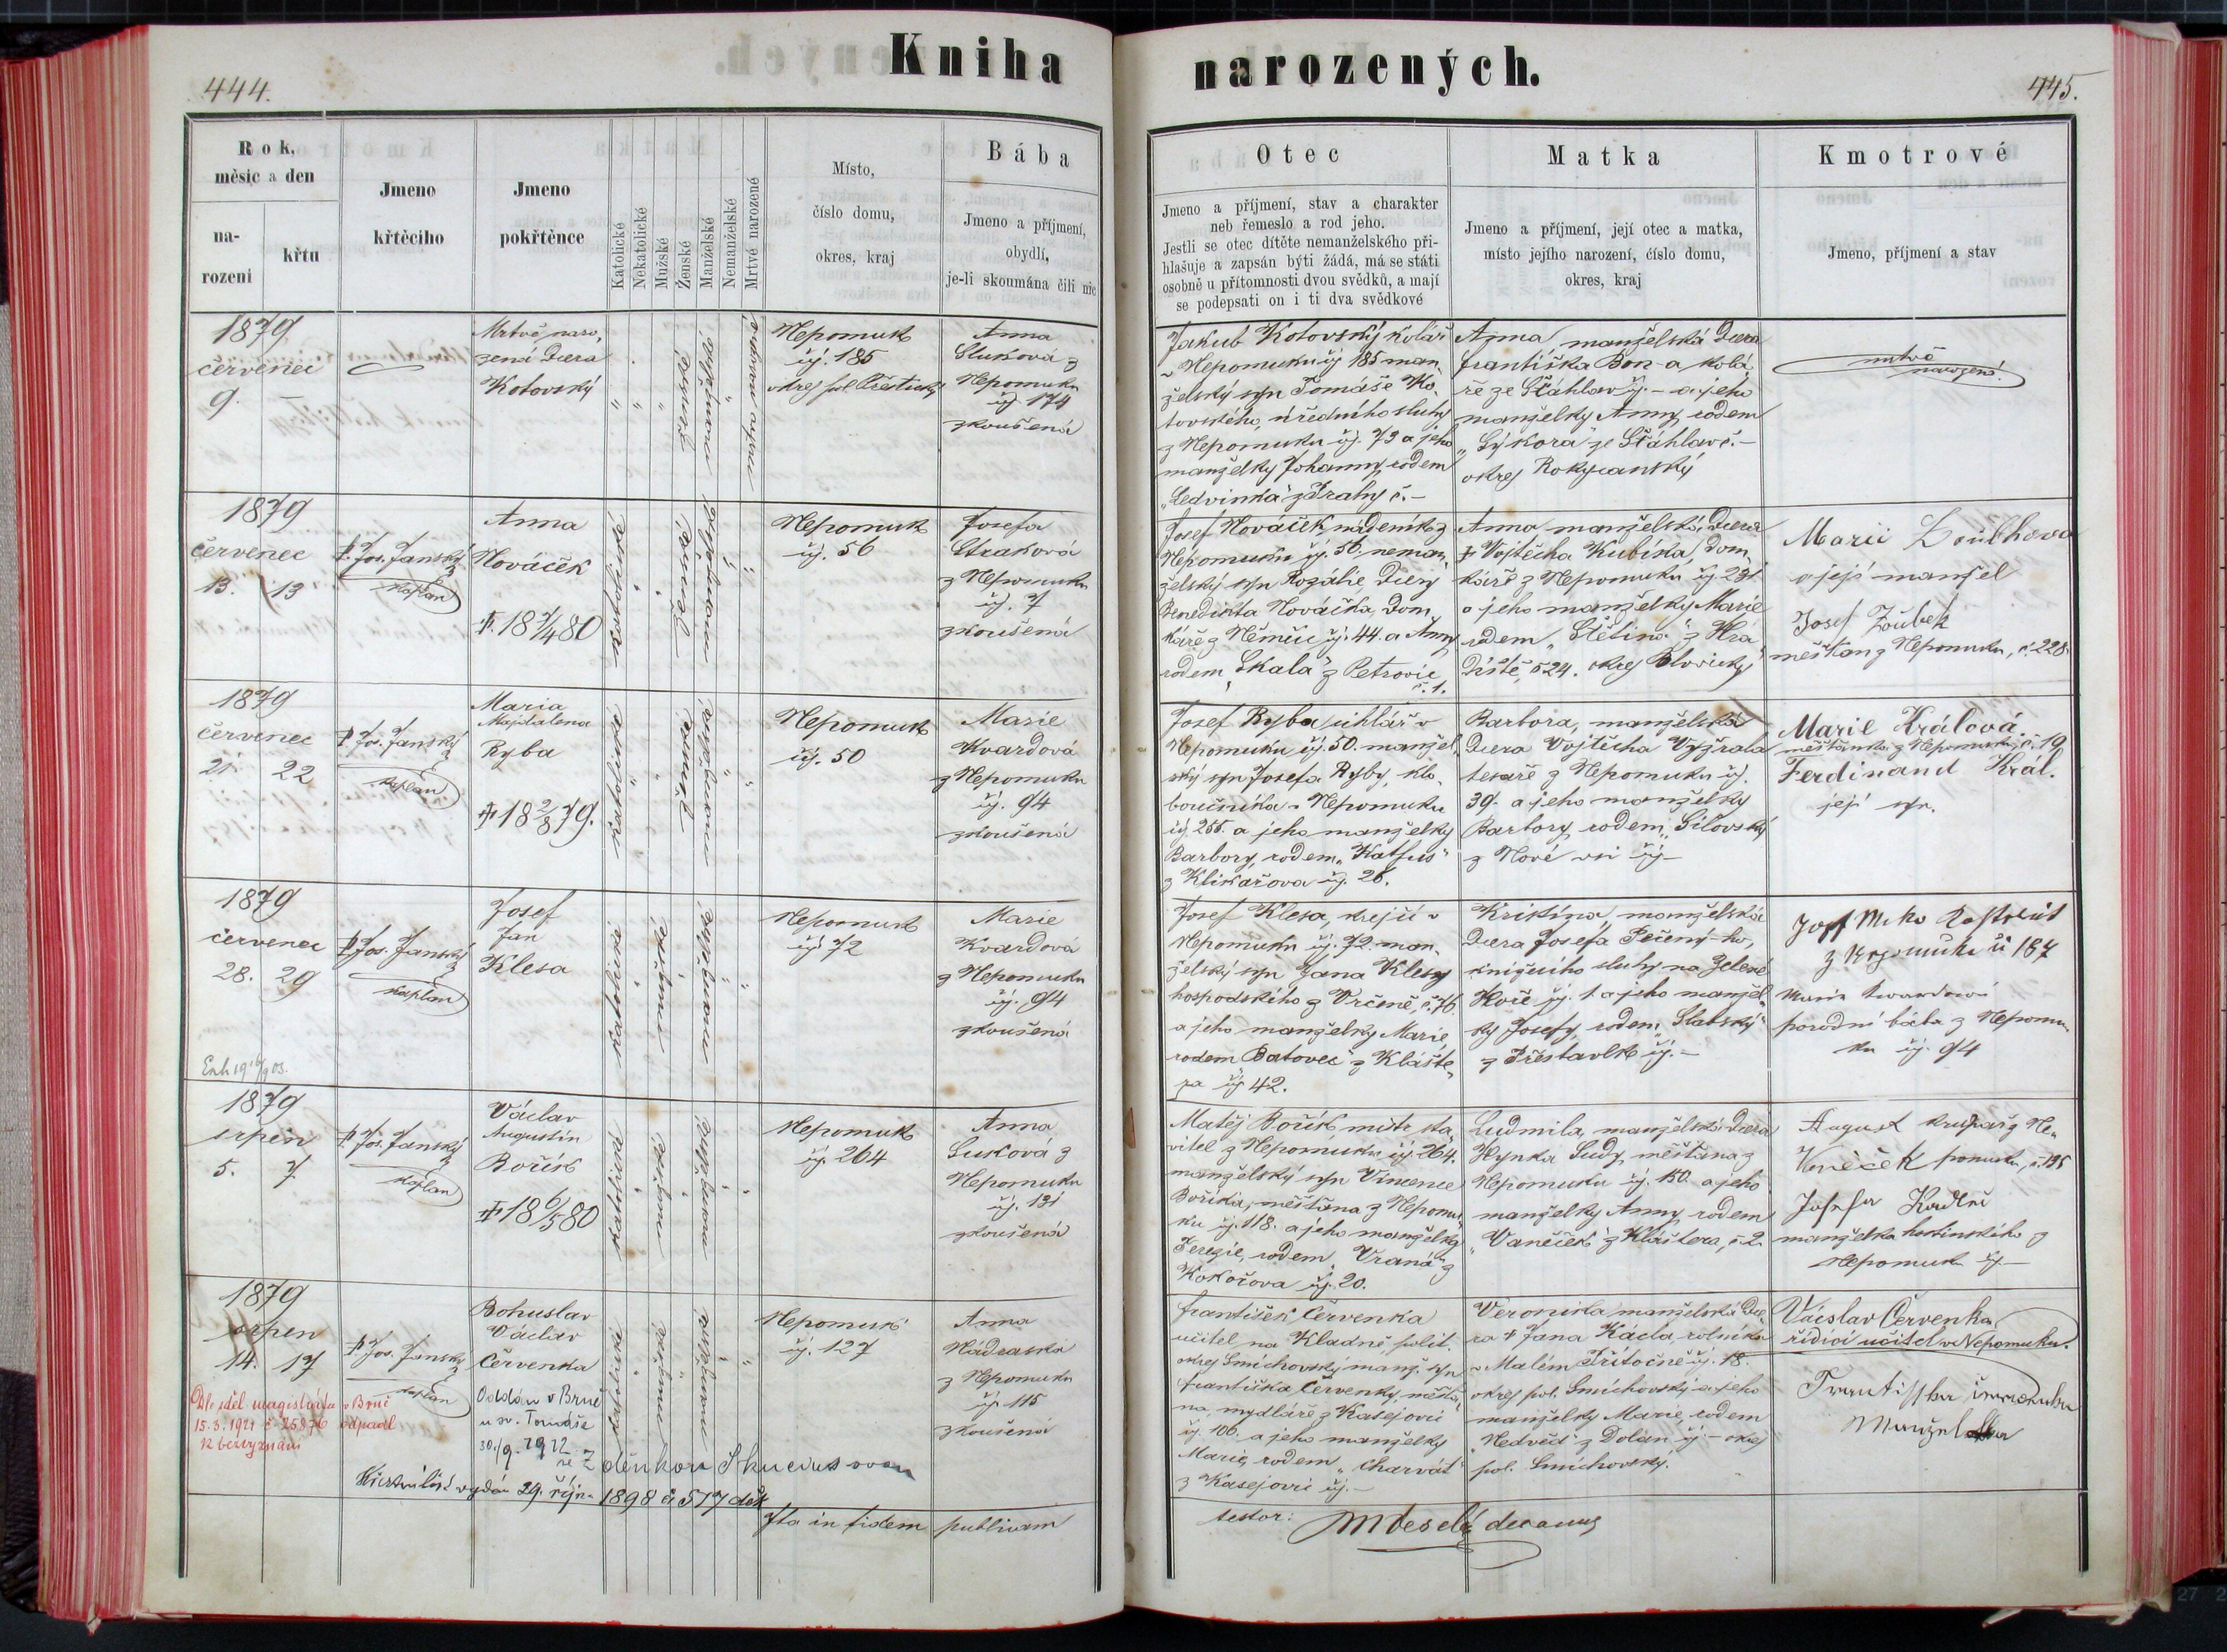 Kniha
narozených.
444.
445.
Rok,
měsíc a den
na-
rozeni
křtu
Jmeno
křtěcího
Jmeno
pokřtěnce
Katolické
Nekatolické
Mužské
Ženské
Manželské
Nemanželské
Mrtvé narozené
Místo,
číslo domu,
okres, kraj
Bába
Jmeno a příjmení,
obydlí,
je-li skoumána čili nic
Otec
Jmeno a příjmení, stav a charakter
neb řemeslo a rod jeho.
Jestli se otec dítěte nemanželského při-
hlašuje a zapsán býti žádá, má se státi
osobně u přítomnosti dvou svědků, a mají
se podepsati on i ti dva svědkové
Matka
Jmeno a příjmení, její otec a matka,
místo jejího narození, číslo domu,
okres, kraj
Kmotrové
Jmeno, příjmení a stav
1879
červenec
9.
Mrtvě naro-
zená dcera
Kotovský
Nepomuk
čj. 185
okres pol. Přeštický
Anna
Sluková z
Nepomuku
čj. 174
zkoušená
Jakub Kotovský kolář
v Nepomuku čj 185 man-
želský syn Tomáše Ko-
tovského, úředního sluhy
z Nepomuku čj. 79 a jeho
manželky Johanny rodem
„Ledvinka" z Prahy č. –
Anna, manželská dcera
Františka Bon-a kolá-
ře ze Šťáhlav čj. – a jeho
manželky Anny rodem
„Sýkora" ze Šťáhlav č. –
okres Rokycanský
mrtvě
narozená.
1879
červenec
13. 13
P. Jos. Janský
kaplan
Anna
Nováček
✝. 18 7/4 80
katolické
ženské
manželské
Nepomuk
čj. 56
Josefa
Straková
z Nepomuku
čj. 7
zkoušená
Josef Nováček, nádeník z
Nepomuku čj. 56. neman-
želský syn Rozálie dcery
Benedikta Nováčka, dom-
káře z Němčic čj. 44. a Anny
rodem „Skala" z Petrovic
č. 1.
Anna manželská dcera
✝ Vojtěcha Kubíka, dom-
káře z Nepomuku čj. 231
a jeho manželky Marie
rodem „Štětina" z Hra-
diště, č 24. okres Blovický
Marii Zoubkova
a její manžel
Josef Zoubek
měšťan z Nepomuku, č. 228.
1879
červenec
21 22
P. Jos. Janský
kaplan
Maria
Majdalena
Ryba
✝ 18 2/8 79.
katolické
Nepomuk
čj. 50
Marie
Kvardová
z Nepomuku
čj. 94
zkoušená
Josef Ryba, uhlíř v
Nepomuku čj. 50. manžel-
ský syn Josefa Ryby, klo-
boučníka v Nepomuku
čj. 255. a jeho manželky
Barbory, rodem „Katfus"
z Klikařova čj. 26.
Barbora, manželská
dcera Vojtěcha Vyžrala
tesaře z Nepomuku čj.
39. a jeho manželky
Barbory rodem „Silovský
z Nové vsi čj –
Marie Králová.
měšťanka z Nepomuku, č. 19
Ferdinand Král.
její syn.
1879
červenec
28. 29
P. Jos. Janský
kaplan
Josef
Jan
Klesa
katolické
Nepomuk
čj 72
Marie
Kvardová
z Nepomuku
čj. 94
zkoušená
Josef Klesa, krejčí v
Nepomuku čj. 72. man-
želský syn Jana Klesy
hospodského z Vrčeně, č. 76.
a jeho manželky Marie
rodem Batovec z Klášte-
ra čj 42.
Kristina, manželská
dcera Josefa Pečený-ho,
knížecího sluhy na Zelené
Hoře čj. 1. a jeho manžel-
ky Josefy, rodem „Slabský"
z Přestavlk čj. –
z Nepomuku č 187
porodní bába z Nepomu-
ku čj. 94
1879
srpen
5. 7
P. Jos. Janský
kaplan
Václav
Augustin
Bořík
✝ 18 6/5 80
katolické
Nepomuk
čj. 264
Anna
Lusková z
Nepomuku
čj. 131
zkoušená
Matěj Bořík mistr sta-
vitel z Nepomuku čj. 264.
manželský syn Vincence
Boříka, měšťana z Nepomu-
ku čj. 118. a jeho manželky
Terezie, rodem „Vraná" z
Kokořova čj. 20.
Ludmila, manželská dcera
Hynka Sudy, měšťana z
Nepomuku čj. 150. a jeho
manželky Anny rodem
„Vaněček" z Kláštera, č. 2.
August krupař z Ne-
Vaněček pomuku, č. 135
Josefa Kadlec
manželka hostinského z
Nepomuku čj –
1879
srpen
14. 17
P. Jos. Janský
kaplan
Bohuslav
Václav
Červenka
Oddán v Brně
u sv. Tomáše
30./9. 1922
se Zdeňkou
Dle sděl magistrátu v Brně
15.3.1921 č. 25876 odpadl
k bezvyznání
vydán 29. října 1898 č 517
katolické
Nepomuk
čj. 127
Anna
Nádraská
z Nepomuku
čj. 115
zkoušená
František Červenka
učitel na Kladně, polit.
okres Smíchovský manž. syn
Františka Červenky, měšťa-
na, mydláře z Kasejovic
čj. 106. a jeho manželky
Marie, rodem „Charvát"
z Kasejovic čj. –
Veronika manželská dce-
ra ✝ Jana Kácla, rolníka
v Malém Přítočně čj. 18.
okres pol. Smíchovský a jeho
manželky Marie, rodem
„Nedvěd" z Dolan čj. – okres
pol. Smíchovský.
Václav Červenka
řídící učitel v Nepomuku.
Františka Červenka
Manželka
Ita in fidem publicam
testor: decanus